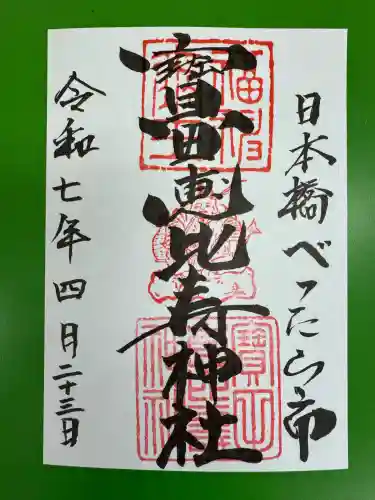 日本橋べったら市
寶田恵比寿神社
令和七年四月二十三日